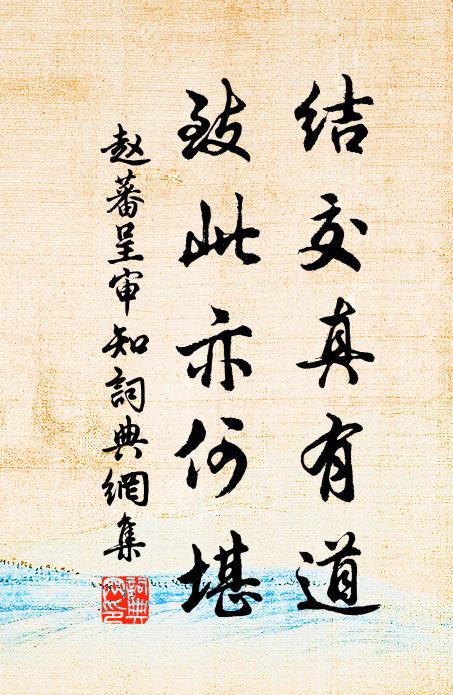 结交真有道
致此亦何堪
赵蕃呈审知詞典網集